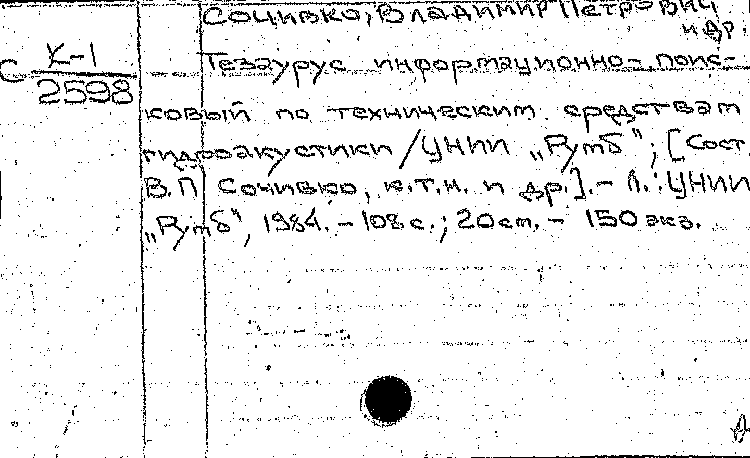 Сочивко, Владимир Петрович
и др.
С К-1
2598
Тезаурус информационно-поис-
ковый по техническим средствам
гидроакустики / ЦНИИ „Румб"; [Сост.
В.П Сочивко, к.т.н. и др.]. - Л.: ЦНИИ
„Румб", 1984. - 108 с.; 20 см. - 150 экз.